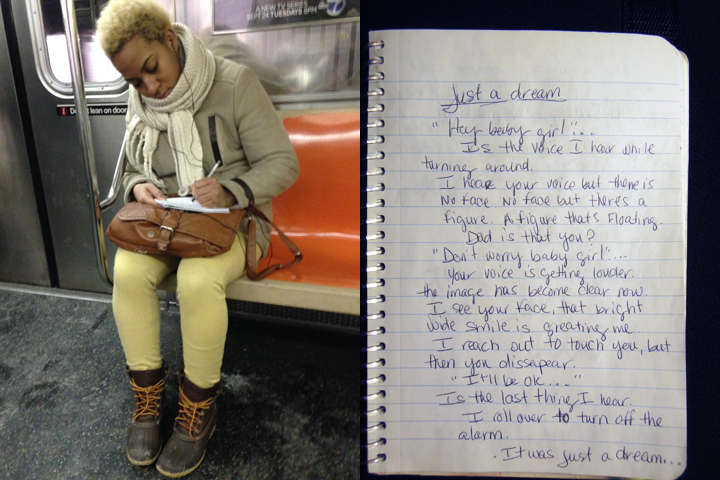 A NEW TV SERIES
SEPT 24 TUESDAYS 8PM abc
Do not lean on door
Just a dream
"Hey baby girl"...
Is the voice I hear while
turning around.
I hear your voice but there is
No face No face but there's a
figure. A figure that's Floating.
Dad is that you?
"Don't worry baby girl"...
your voice is getting louder.
the image has become clear now.
I see your face, that bright
wide smile is greating me.
I reach out to touch you, but
then you dissapear.
"It'll be ok...."
Is the last thing I hear.
I roll over to turn off the
alarm.
. It was just a dream...